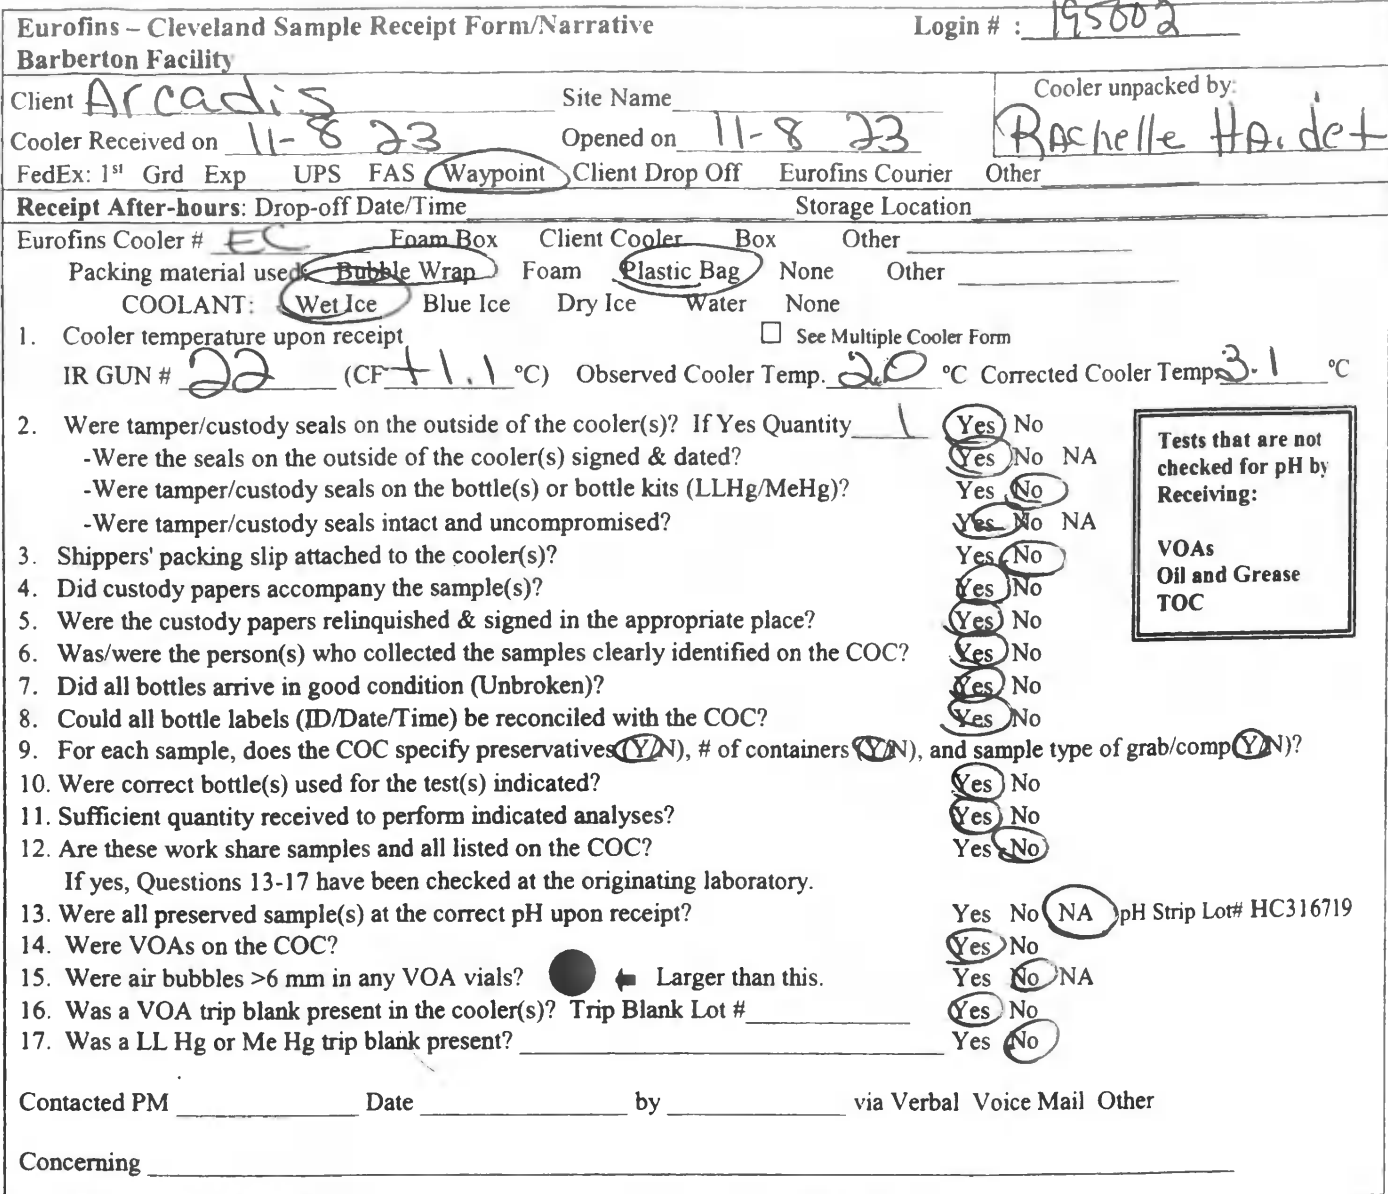 Eurofins – Cleveland Sample Receipt Form/Narrative Login # : 195002
Barberton Facility
Client Arcadis Site Name Cooler unpacked by:
Cooler Received on 11-8 23 Opened on 11-8 23 Rachelle HAidet
FedEx: 1st Grd Exp UPS FAS Waypoint Client Drop Off Eurofins Courier Other
Receipt After-hours: Drop-off Date/Time Storage Location
Eurofins Cooler # EC Foam Box Client Cooler Box Other
Packing material used: Bubble Wrap Foam Plastic Bag None Other
COOLANT: Wet Ice Blue Ice Dry Ice Water None
1. Cooler temperature upon receipt ☐ See Multiple Cooler Form
IR GUN # 22 (CF +1.1 °C) Observed Cooler Temp. 2.0 °C Corrected Cooler Temp. 3.1 °C
2. Were tamper/custody seals on the outside of the cooler(s)? If Yes Quantity 1 Yes No
-Were the seals on the outside of the cooler(s) signed & dated? Yes No NA
-Were tamper/custody seals on the bottle(s) or bottle kits (LLHg/MeHg)? Yes No
-Were tamper/custody seals intact and uncompromised? Yes No NA
3. Shippers' packing slip attached to the cooler(s)? Yes No
4. Did custody papers accompany the sample(s)? Yes No
5. Were the custody papers relinquished & signed in the appropriate place? Yes No
6. Was/were the person(s) who collected the samples clearly identified on the COC? Yes No
7. Did all bottles arrive in good condition (Unbroken)? Yes No
8. Could all bottle labels (ID/Date/Time) be reconciled with the COC? Yes No
9. For each sample, does the COC specify preservatives (Y/N), # of containers (Y/N), and sample type of grab/comp (Y/N)?
10. Were correct bottle(s) used for the test(s) indicated? Yes No
11. Sufficient quantity received to perform indicated analyses? Yes No
12. Are these work share samples and all listed on the COC? Yes No
If yes, Questions 13-17 have been checked at the originating laboratory.
13. Were all preserved sample(s) at the correct pH upon receipt? Yes No NA pH Strip Lot# HC316719
14. Were VOAs on the COC? Yes No
15. Were air bubbles >6 mm in any VOA vials? Larger than this. Yes No NA
16. Was a VOA trip blank present in the cooler(s)? Trip Blank Lot # Yes No
17. Was a LL Hg or Me Hg trip blank present? Yes No
Tests that are not
checked for pH by
Receiving:
VOAs
Oil and Grease
TOC
Contacted PM Date by via Verbal Voice Mail Other
Concerning